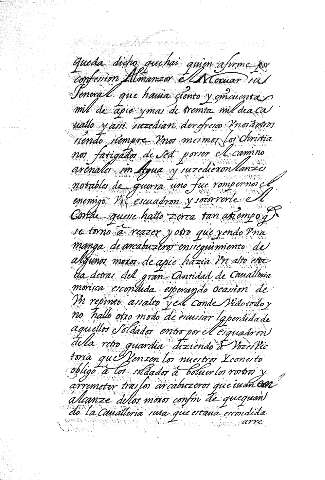 queda dicho, que hai quien afirme por
confesion Almanzor el Mocuar su
General que havia ciento y cinquenta
mil de apie y mas de treinta mil de aca
uallo y assi suzedian
siendo siempre Vnos mesmos los Christia
nos fatigados de sed por ser el camino
arenales sin Agua y suzedieron lanzes
notables de guerra uno fue romper nos el
enemigo Vn escuadron y socorrerle el
Conde que se hallo zerca tan atiempo q̃
se torno à rezzer y otro que yendo Vna
manga de arcabuzeros en seguimiento de
algunos moros de apie hazia Vn alto esta
ba detras del gran Cantidad de Cavalleria
morisca escondida esperando ocasion de
Vn repinto assalto y el Conde Vido esto y
no hallo otro modo de euusar la perdida de
aquellos Soldados entro por el esquadron
de la retro guardia diziendo à Vozes Vic
toria que Venzen los nuestros Y con esto
obligo à los soldados à boluer los rostros y
arremeter tras los arcabuzeros que iuan en
alcanze de los moros con fin de que quan
do la Cavalleria suia que estaua escondida
arre